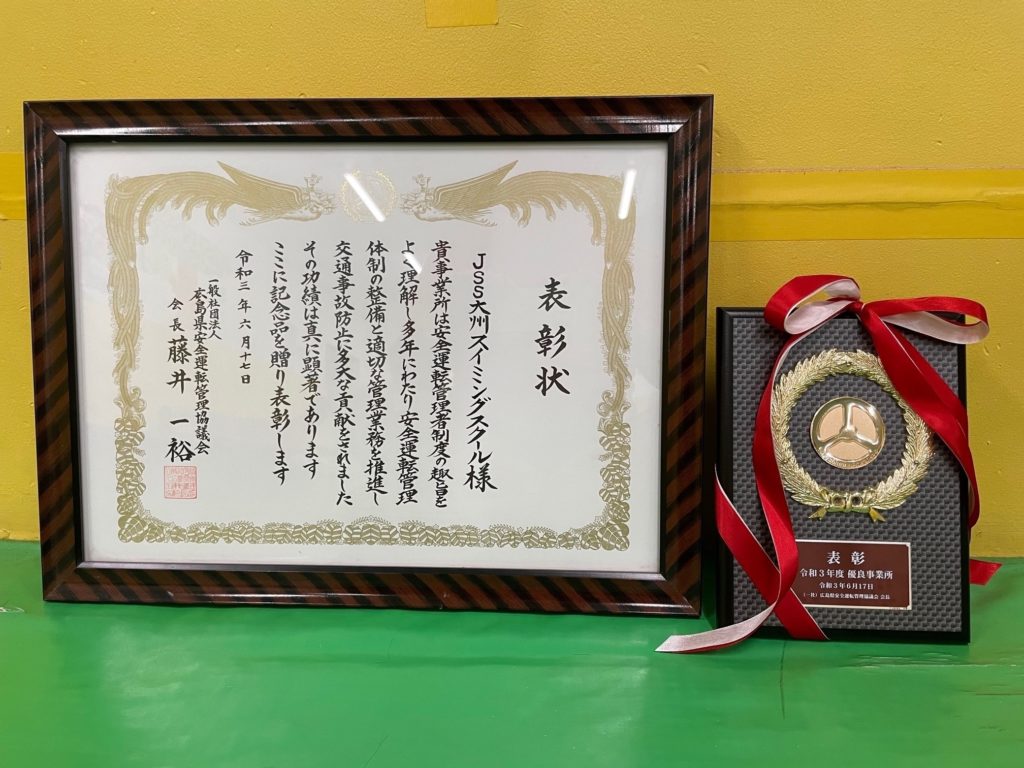 表彰状
JSS大州スイミングスクール様
貴事業所は安全運転管理者制度の趣旨を
よく理解し多年にわたり安全運転管理
体制の整備と適切な管理業務を推進し
交通事故防止に多大な貢献をされました
その功績は真に顕著であります
ここに記念品を贈り表彰します
令和三年六月十七日
一般社団法人
広島県安全運転管理協議会
会長 藤井一裕
表彰
令和3年度 優良事業所
令和3年6月17日
(一社)広島県安全運転管理協議会 会長